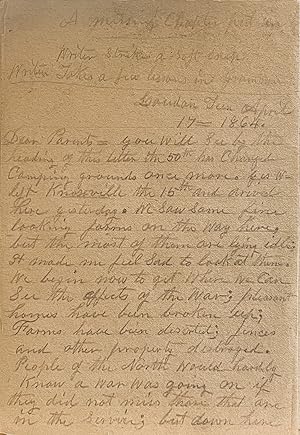 A missing Chapter put in
Writer Strikes a soft snap
Writer Takes a few lessons in Grammar
Loudon Tenn April
17 = 1864.
Dear Parents = you Will See by the
heading of this letter the 50th has Changed
Camping grounds once more. We
left Knoxville the 15th and arived
here yesterday. We Saw Some fine
looking farms on the Way here,
but the most of them are lying idle;
It made me feel Sad to look at them.
We begin now to get Where We Can
See the effects of the War; pleasant
homes have been broken up;
Farms have been deserted; fences
and other property destroyed.
People of the North Would hardly
Know a War Was going on if
they did not miss those that are
in the Service; but down here